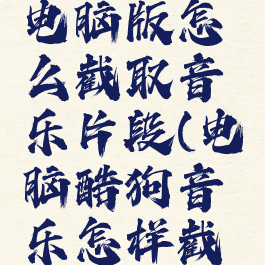 电脑版怎
么截取音
乐片段(电
脑酷狗音
乐怎样截